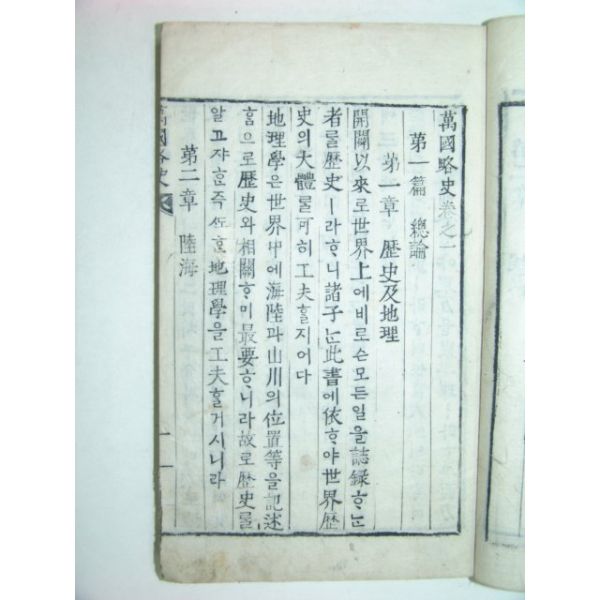 萬國略史卷之一
第一篇 總論
第一章 歷史及地理
開闢以來로世界上에비로슨모든일을誌錄ᄒᆞᄂᆞᆫ
者ᄅᆞᆯ歷史ㅣ라ᄒᆞᄂᆞ니諸子ᄂᆞᆫ此書에依ᄒᆞ야世界歷
史의大體ᄅᆞᆯ可히工夫ᄒᆞᆯ지어다
地理學은世界中에海陸과山川의位置等을記述
ᄒᆞᆷ으로歷史와相關ᄒᆞ미最要ᄒᆞ니라故로歷史ᄅᆞᆯ
알고쟈ᄒᆞᆫ즉ᄯᅩᄒᆞᆫ地理學을工夫ᄒᆞᆯ거시니라
第二章 陸海
萬國略史
一